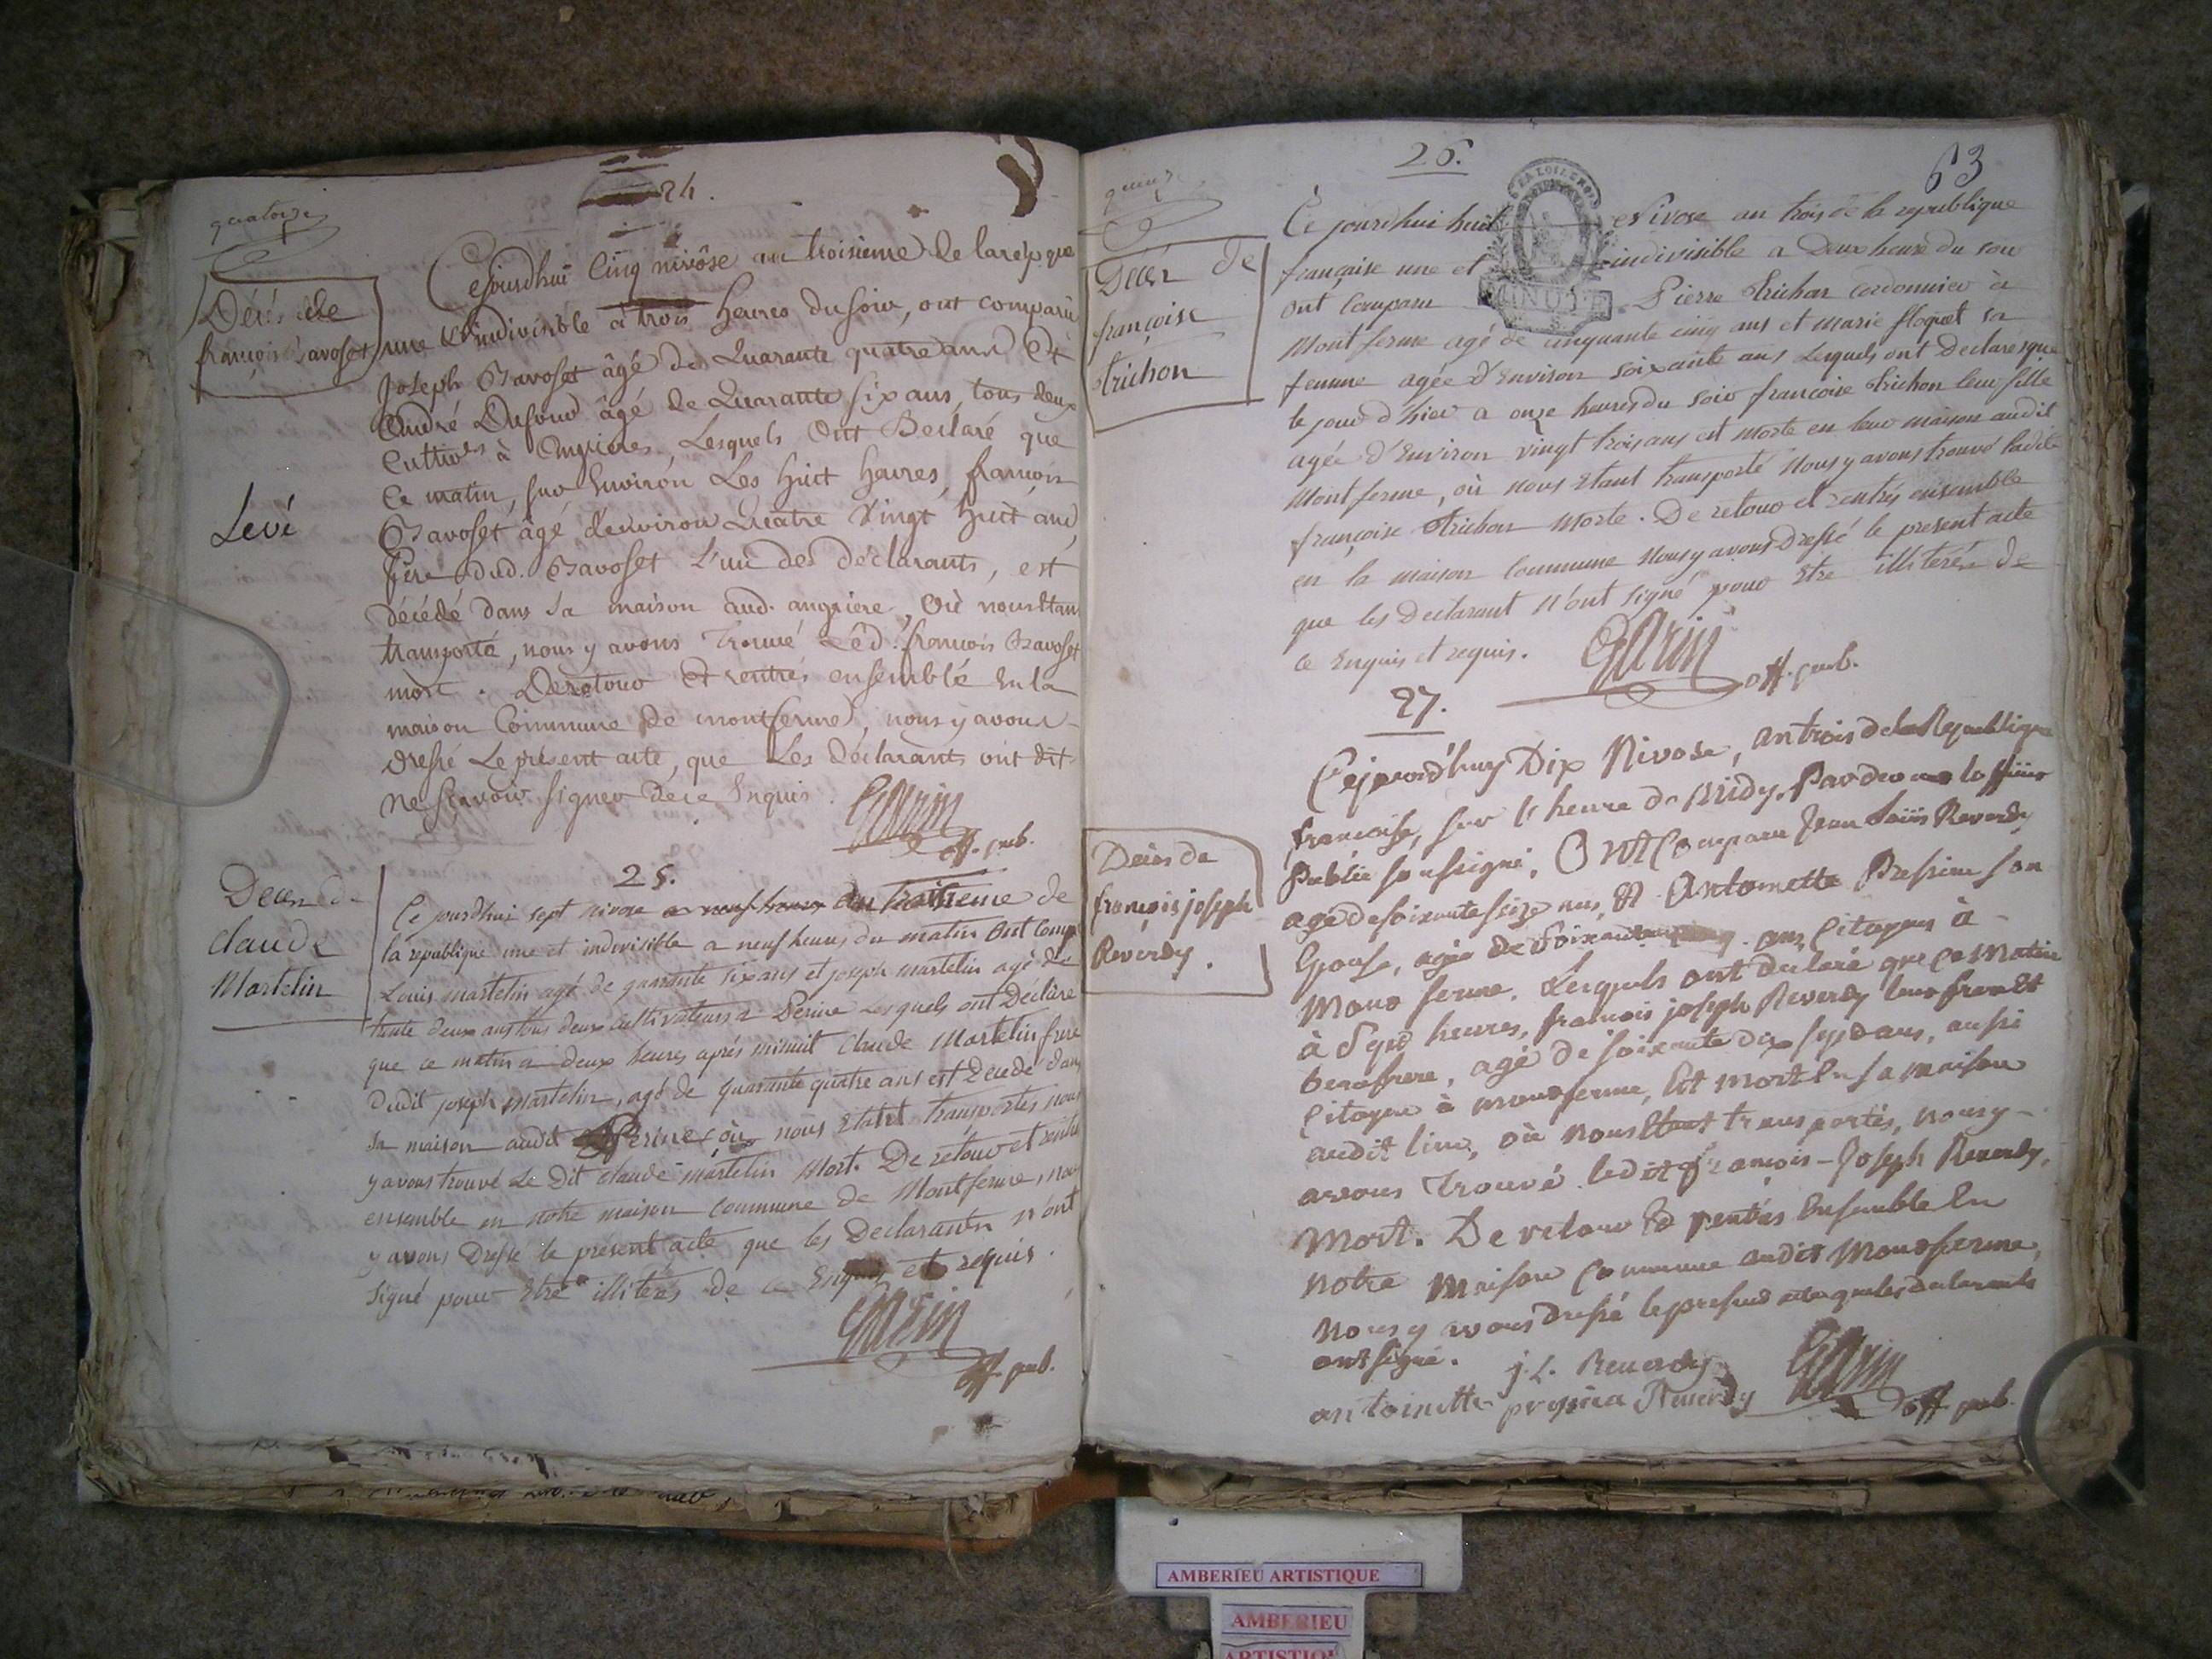 24.
quatorze
Décès de
françois Savoset
Cejourdhui Cinq nivôse an troisieme de la rép.que
une & indivisible à trois heures du soir, ont comparu
Joseph Savoset âgé de Quarante quatre ans Et
André Dufour âgé de Quarante six ans, tous deux
Cultiv.rs à Angrieres Lesquels Ont Declaré que
Ce matin, sur Environ Les huit heures, francois
Savoset âgé d'environ Quatre Vingt huit ans
Père dud. Savoset L'un des déclarants, est
décédé dans sa maison aud. angriere, Où nous Etans
transporté, nous y avons Trouvé Led. francois Savoset
mort. De retour Et rentrés ensemble En la
maison Commune de montferme, nous y avons
dressé Le présent acte, que Les Déclarants ont dit
Ne sçavoir signer de ce Enquis.
Levé
Garin
off. pub.
25.
Deces de
claude
Martelin
Ce jourdhui sept nivose a neuf heures an troisieme de
la republique une et indivisible a neuf heures du matin Ont comp.
Louis martelin agé de quarante six ans et joseph martelin agé de
trente deux ans tous deux cultivateurs a Perine Lesquels ont Déclare
que ce matin a deux heures aprés minuit Claude Martelin frere
dudit joseph Martelin, agé de quarante quatre ans est Decedé dans
sa maison audit Perine, où nous Etant transportés nous
y avons trouvé Le Dit claude martelin Mort. De retour et rentrés
ensemble en notre maison commune de Montferme, nous
y avons Dressé le présent acte que les Declarants n'ont
signé pour Etre illiterés de ce Enquis et requis.
Garin
off. pub.
26.
63
quinze
MINUTE
Décès de
françoise
trichon
Ce jourdhui huit Nivose an trois de la republique
française une et indivisible a Deux heure du soir
ont Comparu Pierre trichon cordonnier à
Montferme agé de cinquante cinq ans et marie floquet sa
femme agée d'Environ soixante ans Lesquels ont Declarés que
le jour d'hier a onze heures du soir françoise trichon leur fille
agée d'Environ vingt trois ans est Morte en leur maison audit
Montferme, où nous Etant transporté Nous y avons trouvé ladite
françoise trichon Morte. De retour et rentrés ensemble
en la maison Commune Nous y avons dressé le present acte
que les Declarant N'ont signé pour Etre illiterés de
ce Enquis et requis.
Garin
off. pub.
27.
Décès de
françois joseph
Reverdy.
Cejourd'huy Dix Nivose, an trois de la Republique
francoise, sur l'heure de Midy, Pardevant lofficier
Public soussigné, Ont Comparu Jean Louis Reverdy
agé de soixante seize ans, & Antoinette son
Epouse, agée de soixante ans, Citoyens à
Montferme. Lesquels ont declaré que ce Matin
à Sept heures, francois joseph Reverdy leur frere Et
beaufrere, agé de soixante dix sept ans, aussi
Citoyen à montferme, Est mort En sa maison
audit lieu, où nous Etant transportés, nous y
avons Trouvé ledit françois-Joseph Reverdy,
Mort. De retour & rentrés Ensemble En
notre Maison Commune audit Montferme,
Nous y avons dressé le present acte que les declarants
ont signé. j. L. Reverdy
antoinette Reverdy
Garin
off. pub.
AMBERIEU ARTISTIQUE
AMBERIEU
ARTISTIQUE